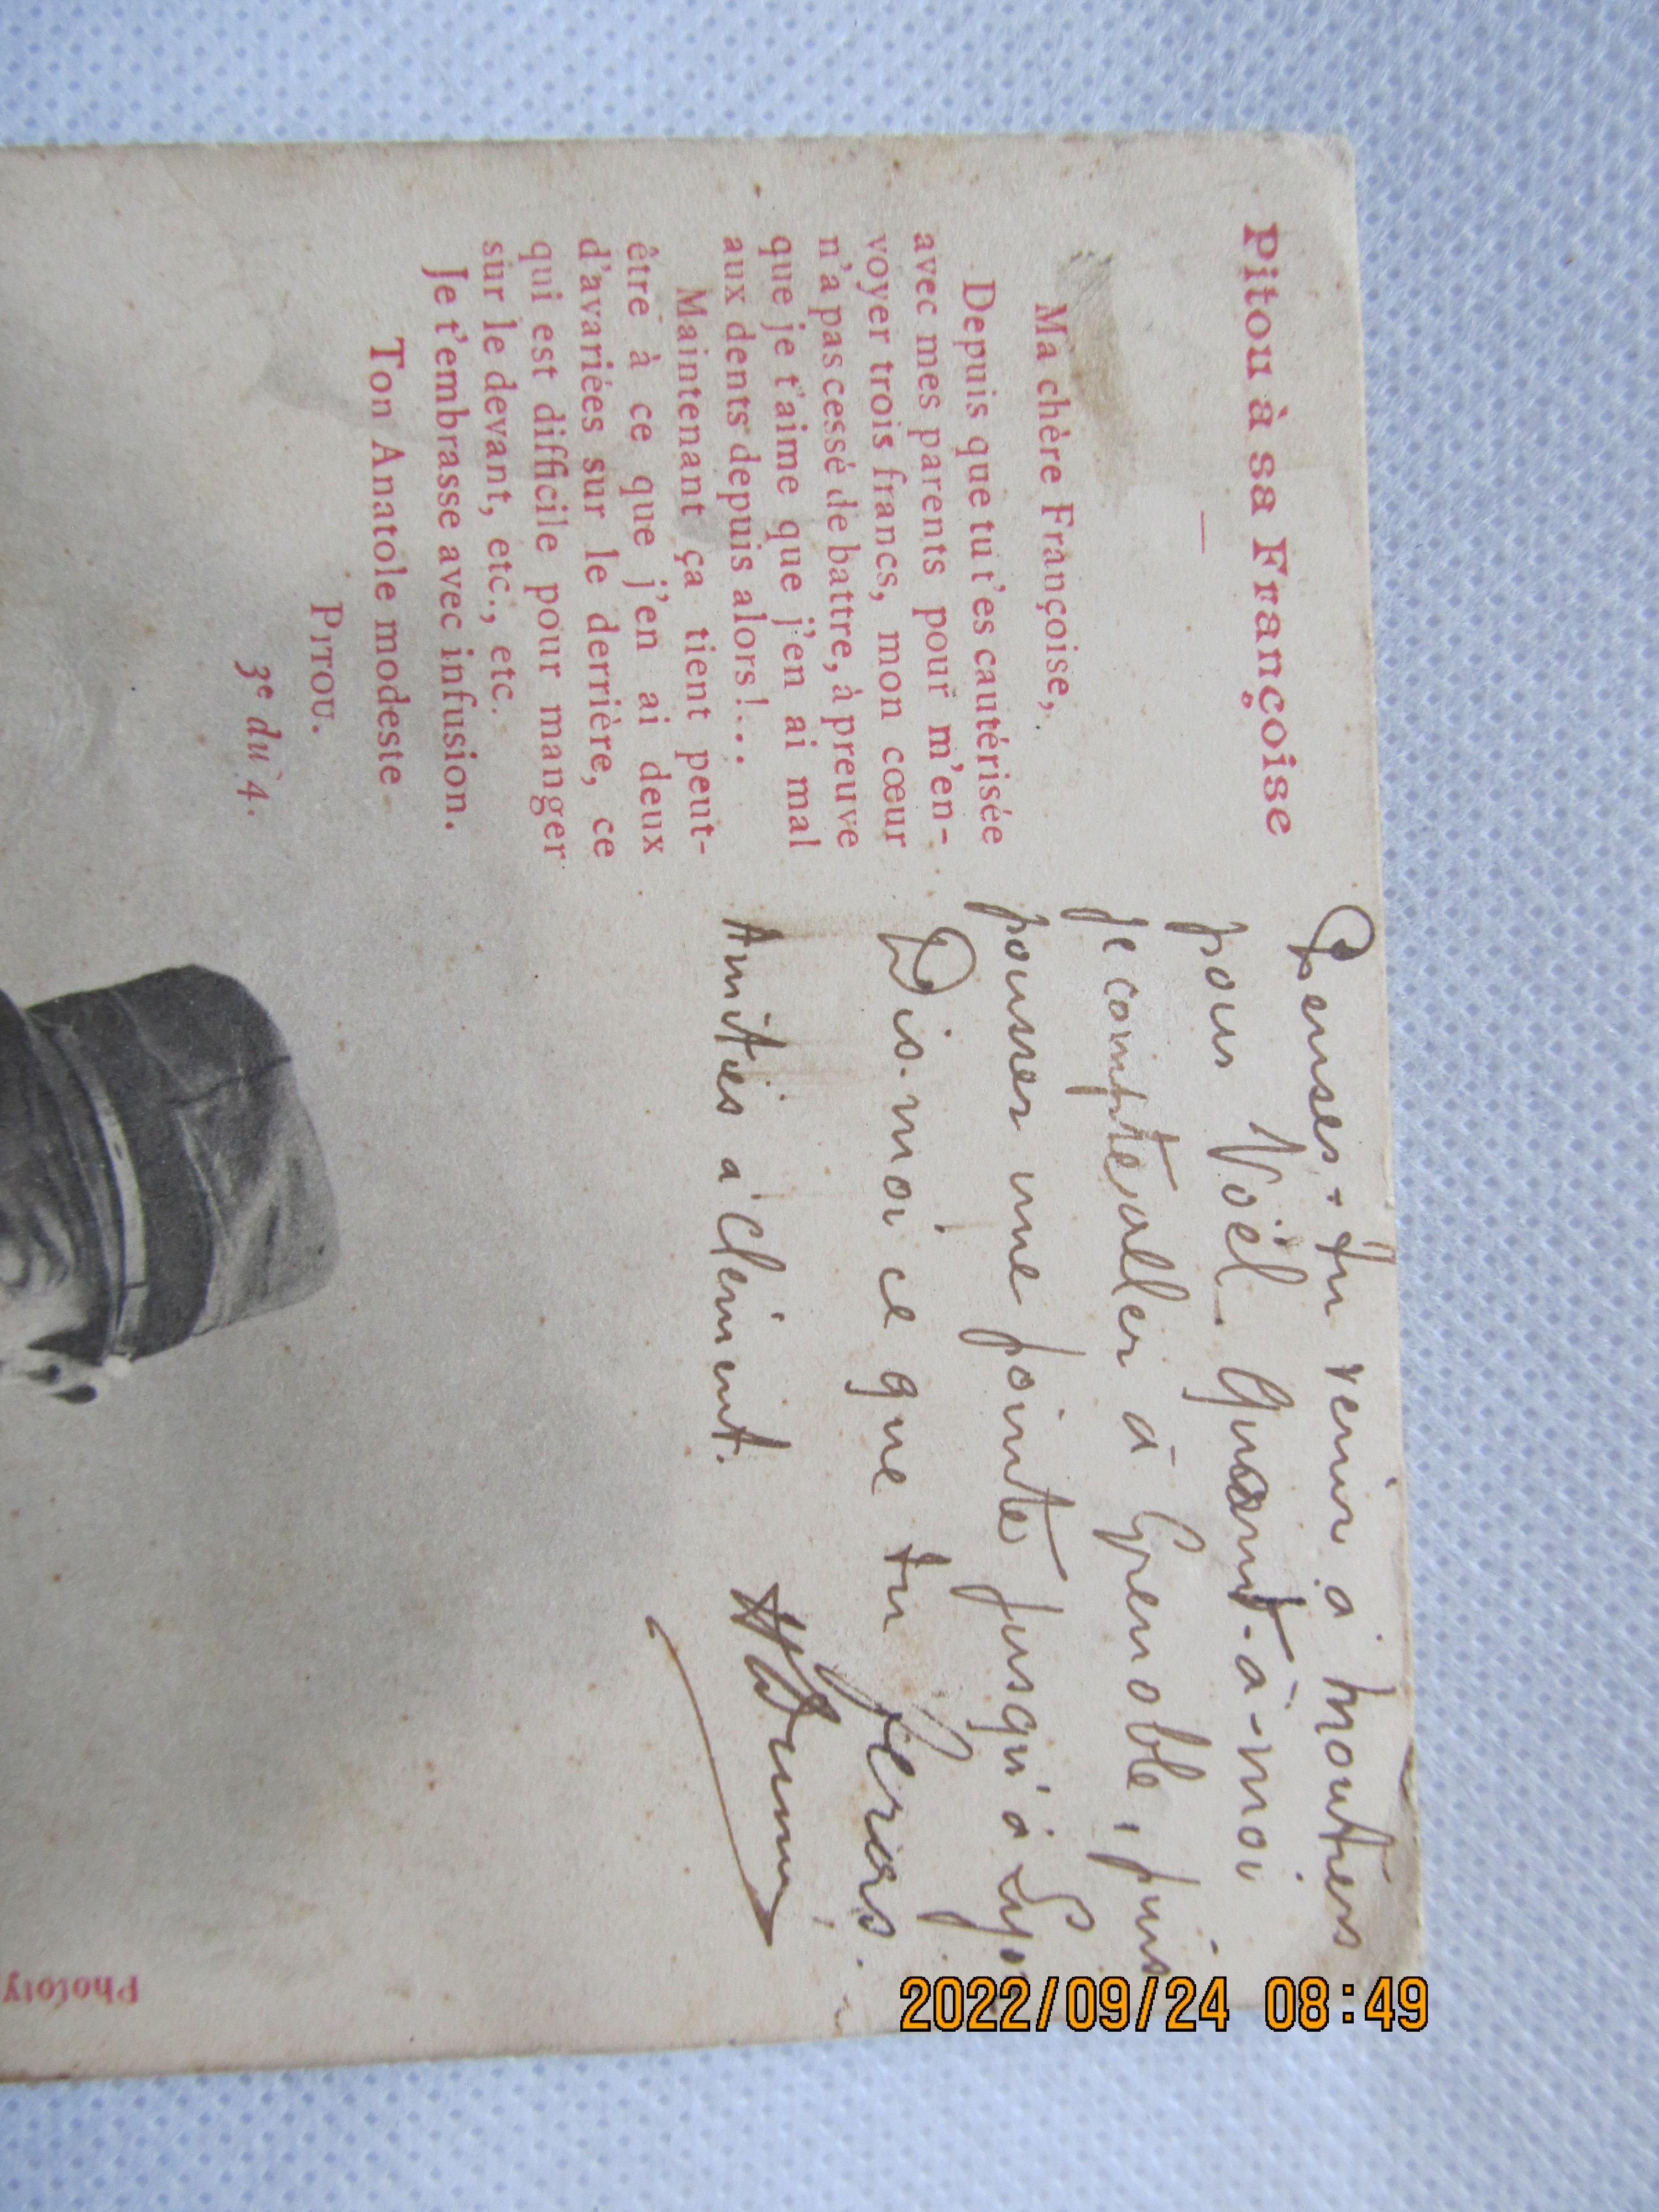 Pitou à sa Françoise
Ma chère Françoise,
Depuis que tu t'es cautérisée
avec mes parents pour m'en-
voyer trois francs, mon cœur
n'a pas cessé de battre, à preuve
que je t'aime que j'en ai mal
aux dents depuis alors!...
Maintenant ça tient peut-
être à ce que j'en ai deux
d'avariées sur le derrière, ce
qui est difficile pour manger
sur le devant, etc., etc.
Je t'embrasse avec infusion.
Ton Anatole modeste
PITOU.
3e du 4.
Penses-tu venir à Moutiers
pour Noël. Quant-à-moi
je compte aller à Grenoble, puis
pousser une pointe jusqu'à Lyon
Dis-moi ce que tu feras.
Amitiés à Clément.
Phototy
2022/09/24 08:49